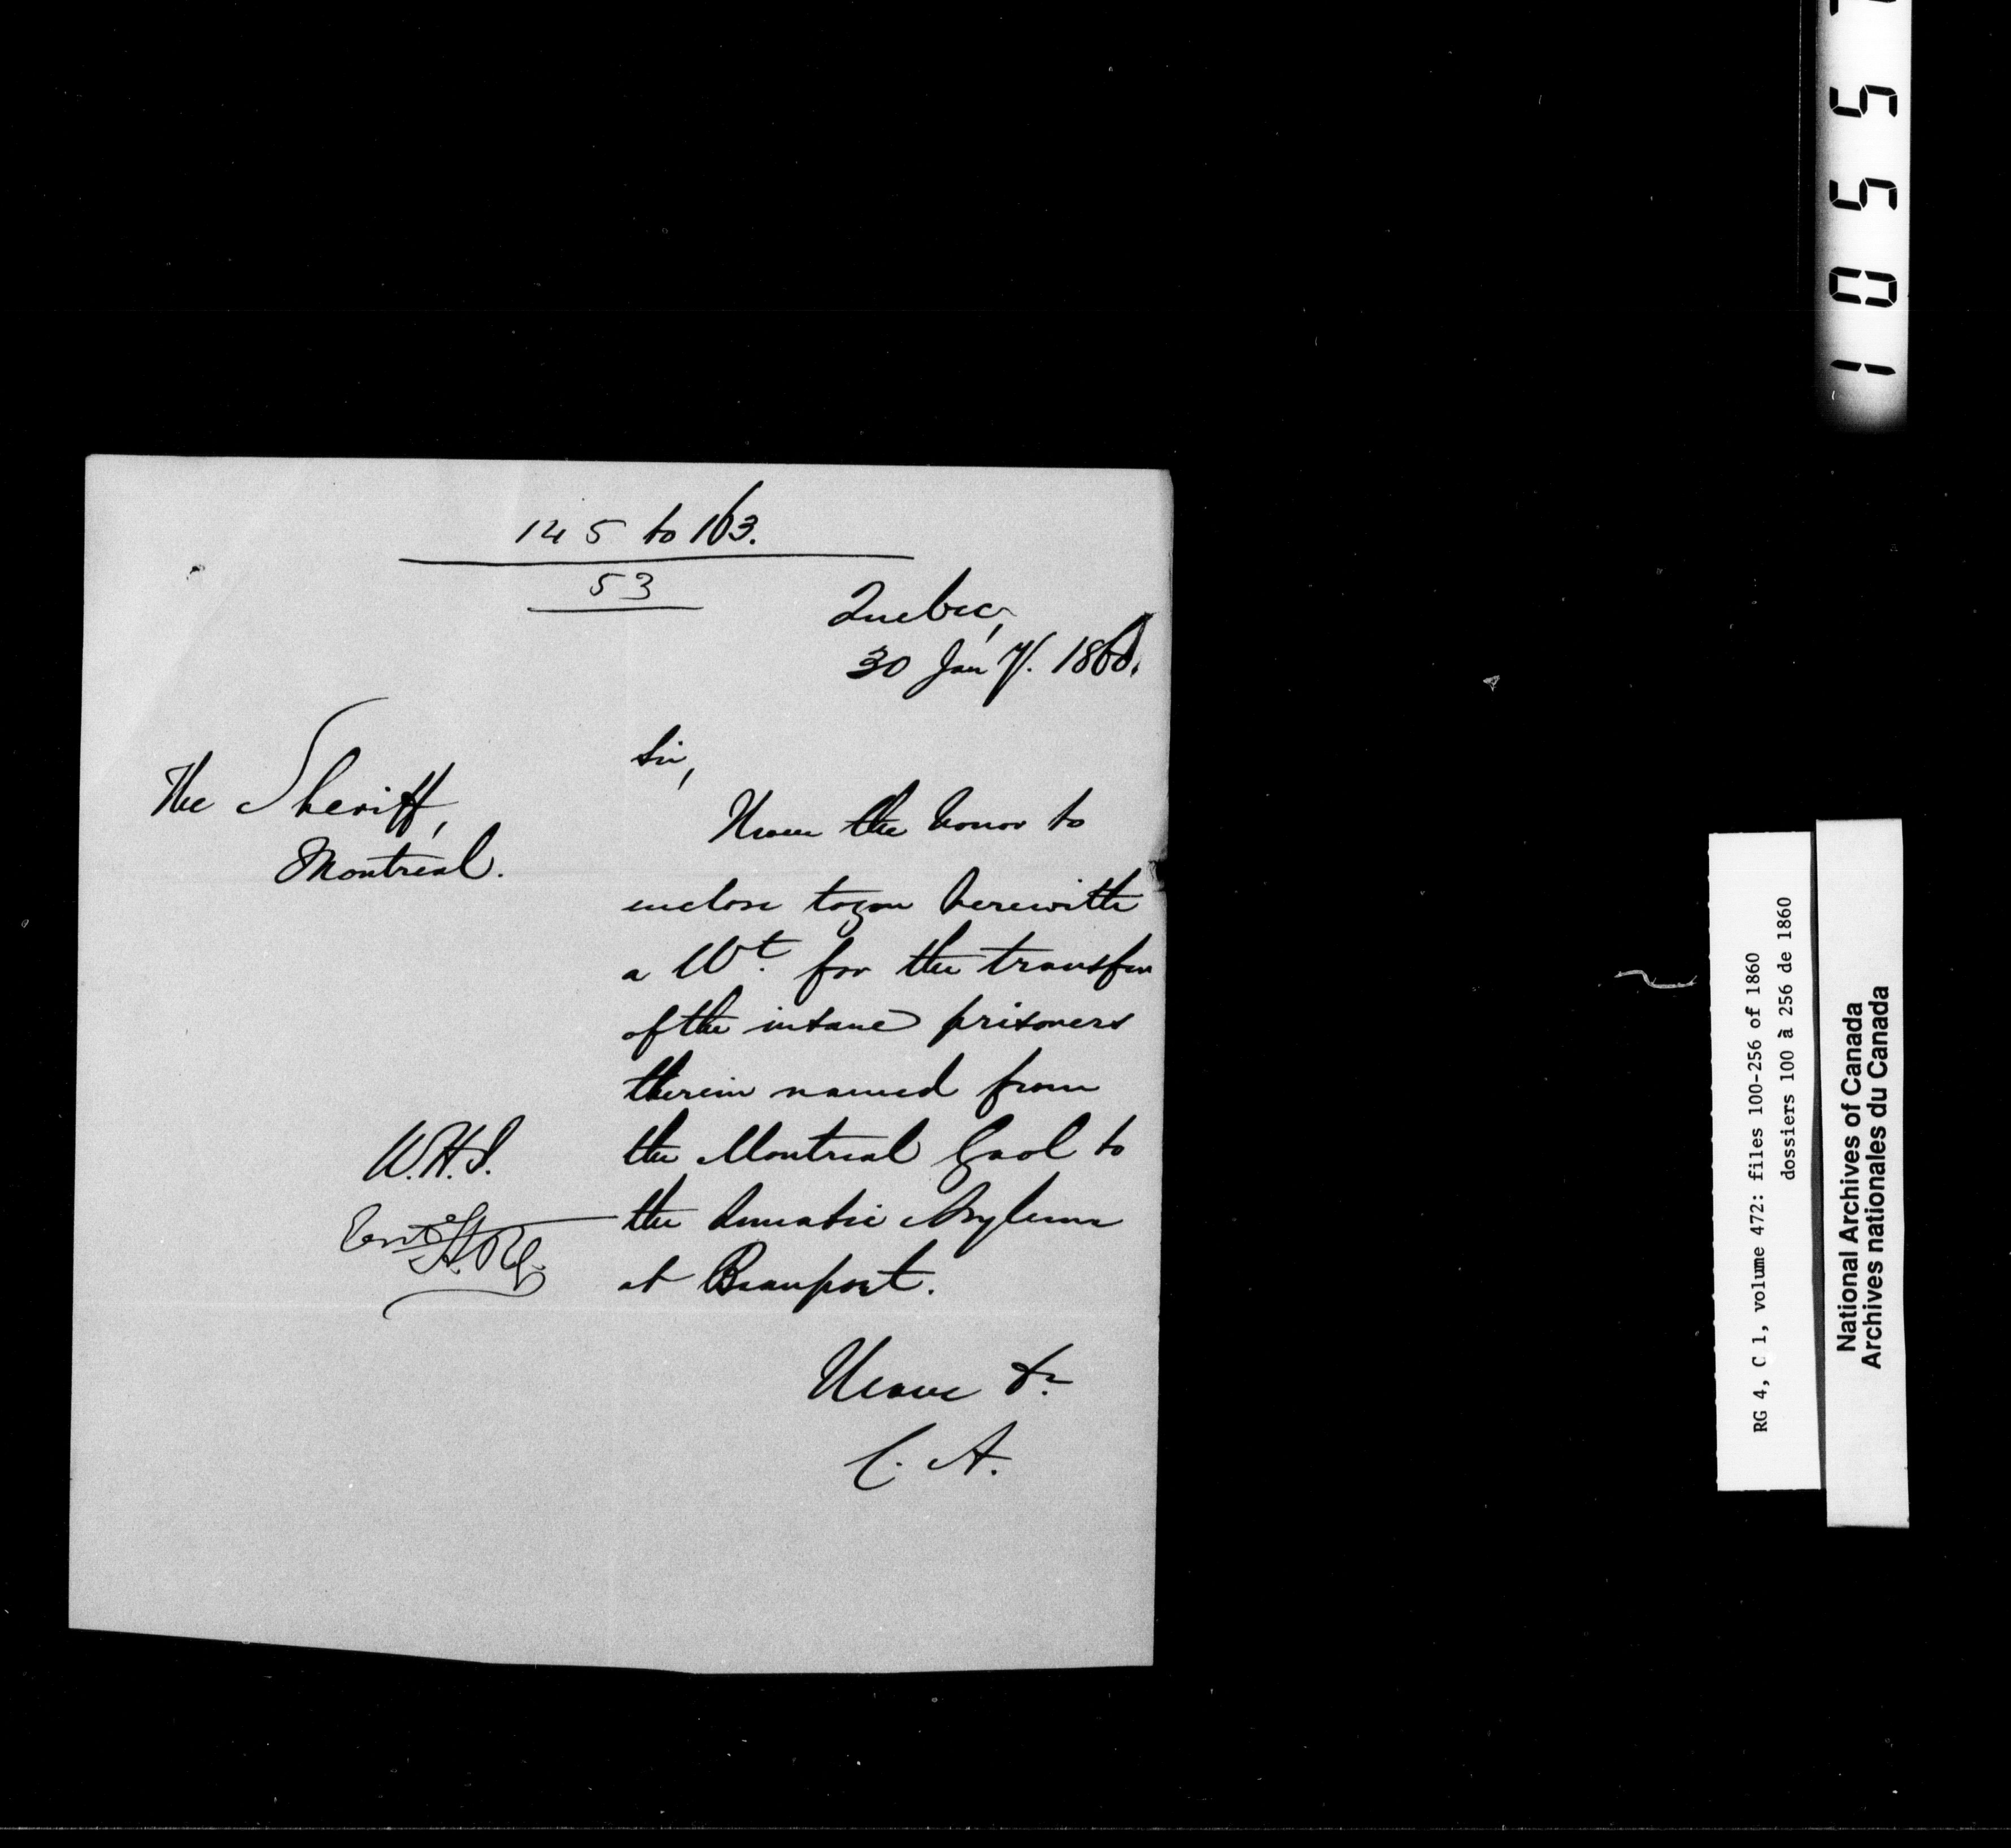 145 to 163.
53
Quebec,
30 Jany. 1860.
The Sheriff,
Montreal.
Sir,
I have the honor to
enclose to you herewith
a Wt. for the transfer
of the insane prisoners
therein named from
the Montreal Gaol to
the Lunatic Asylum
at Beauport.
W.H.J.
I have &c
C. A.
1055
RG 4, C 1, volume 472: files 100-256 of 1860
dossiers 100 à 256 de 1860
National Archives of Canada
Archives nationales du Canada